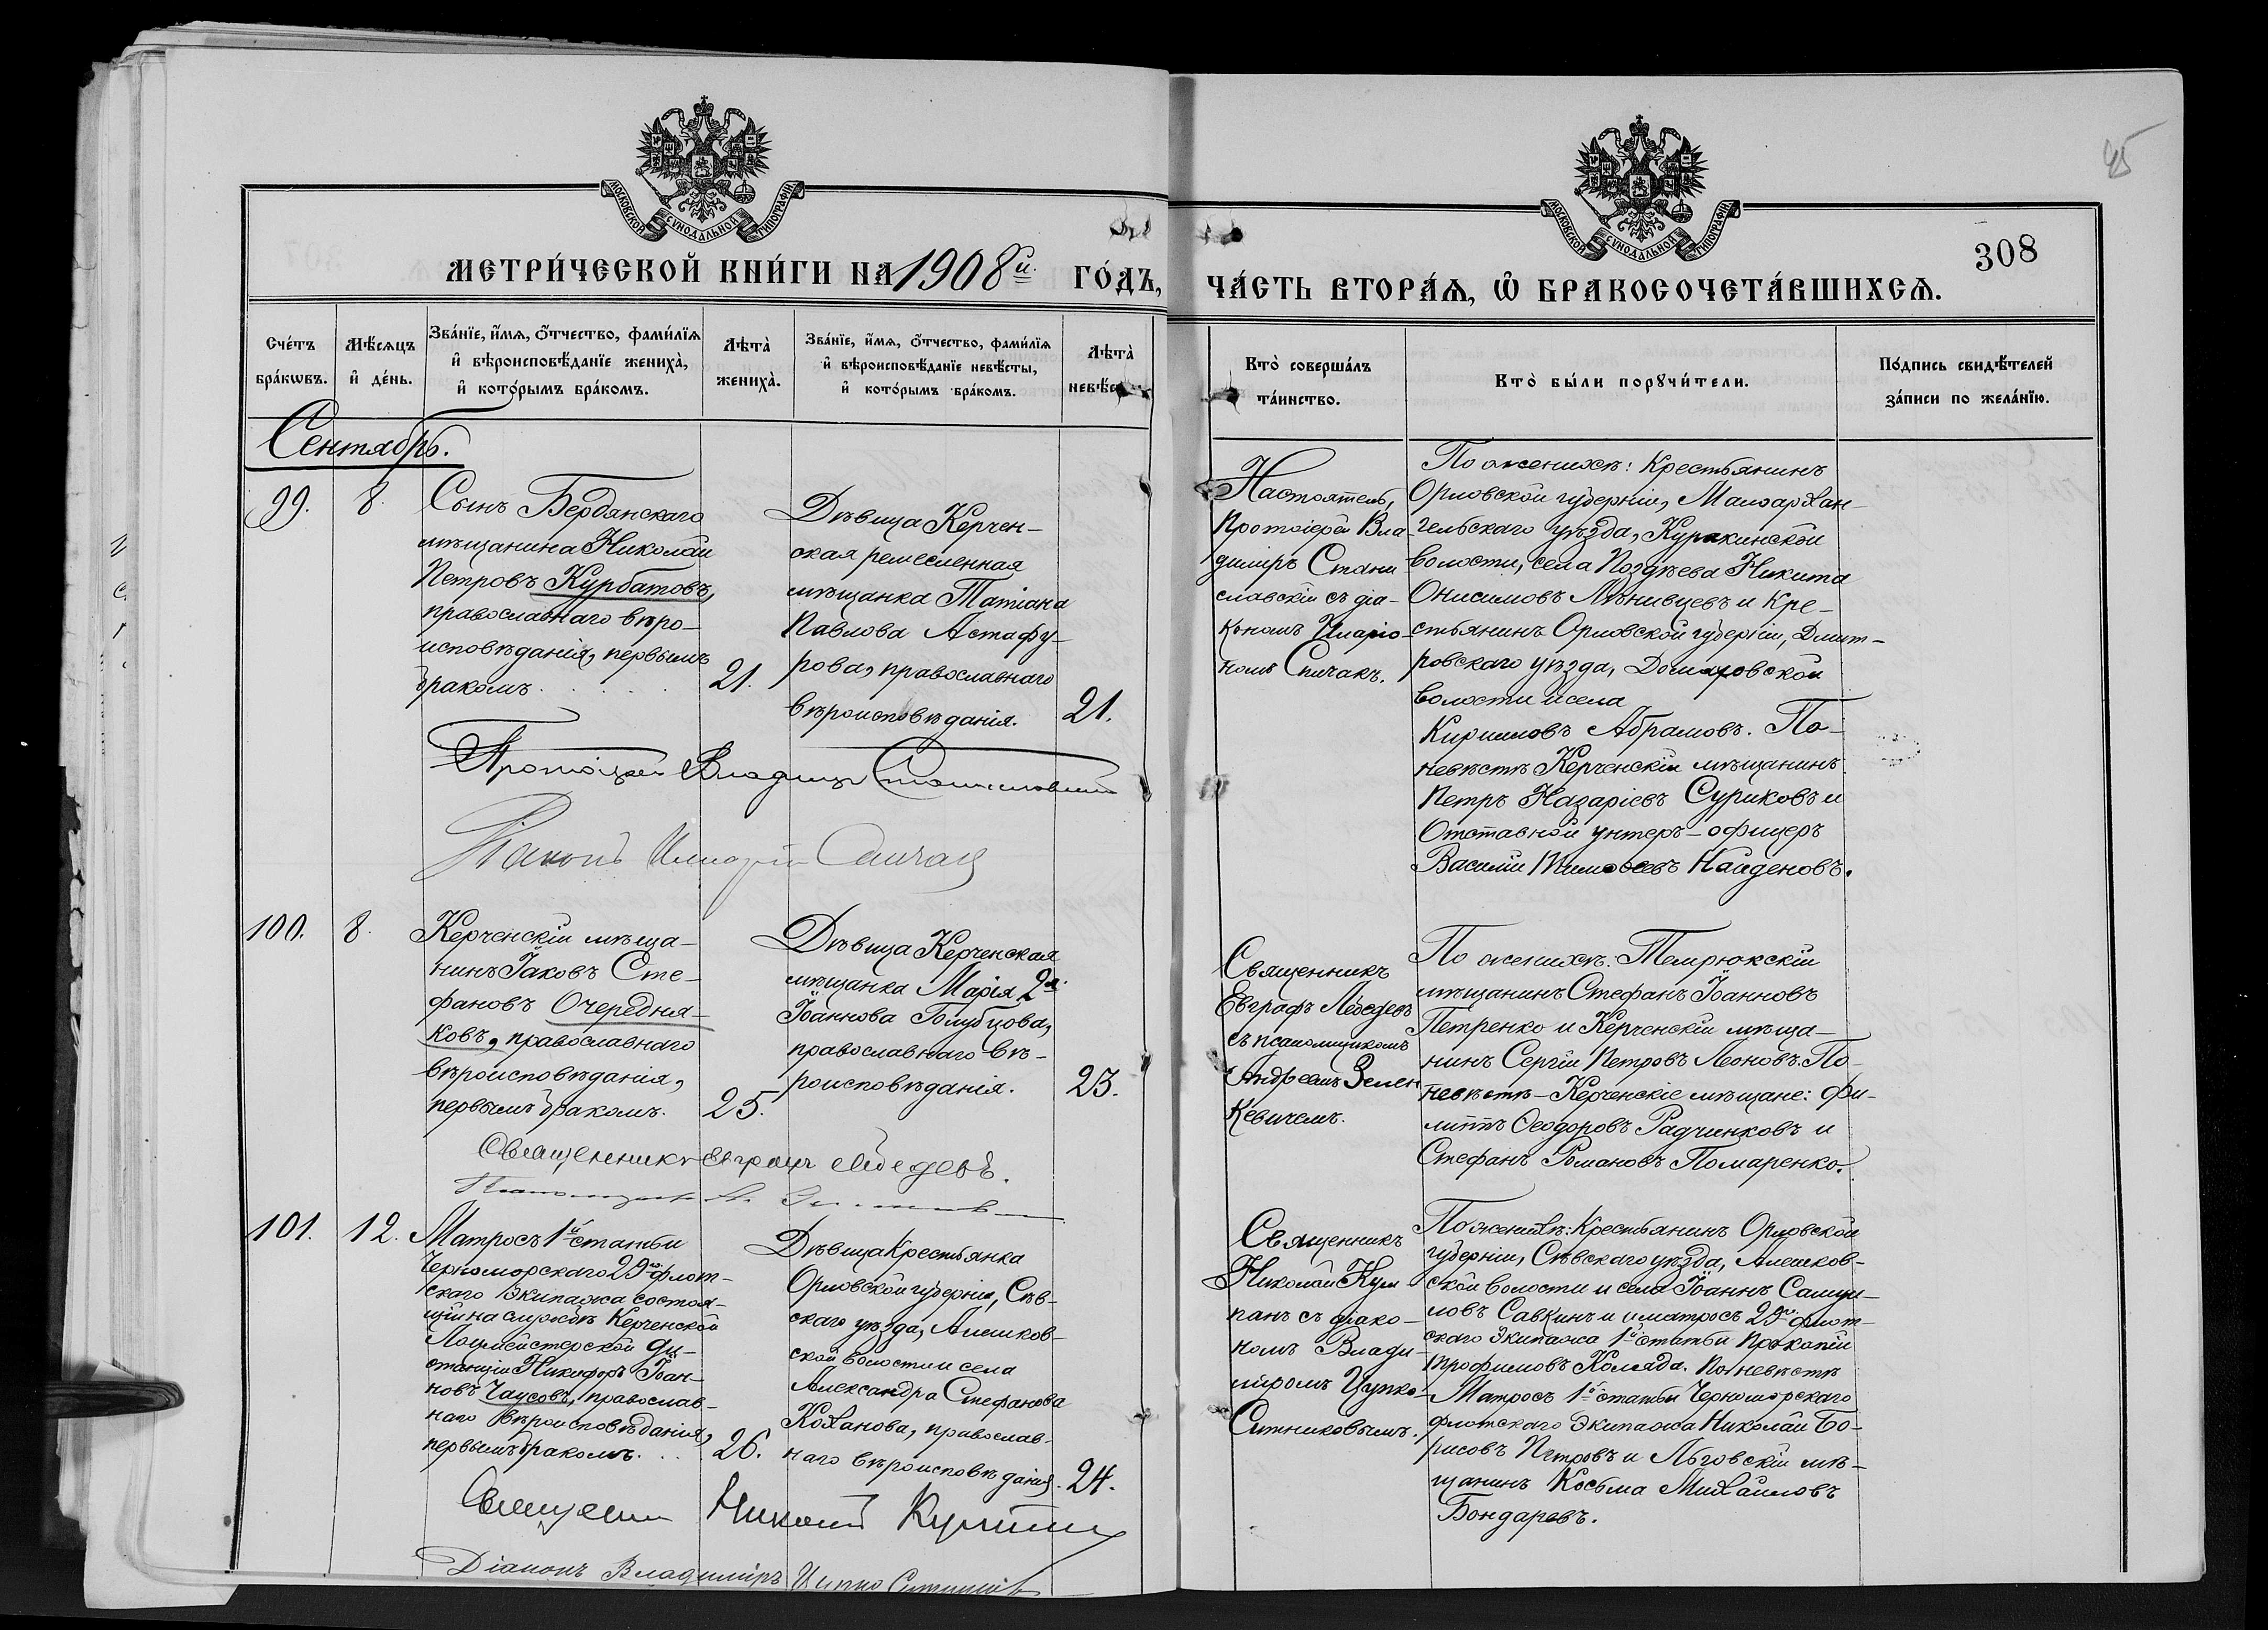 45
МОСКОВСКОЙ СѴНОДАЛЬНОЙ ТИПОГРАФІИ
МОСКОВСКОЙ СѴНОДАЛЬНОЙ ТИПОГРАФІИ
308
МЕТРИ́ЧЕСКОЙ КНИ́ГИ НА 1908й ГО́ДЪ,
ЧА́СТЬ ВТОРА́Ѧ, Ѡ БРАКОСОЧЕТА́ВШИХСѦ.
Сче́тъ бра́кѡвъ.
Мѣ́сѧцъ и҆ де́нь.
Зва́нїе, и҆́мѧ, ѻ҆́тчество, фами́лїѧ
и҆ вѣроисповѣ́данїе жениха̀,
и҆ кото́рымъ бра́комъ.
Лѣта̀ жениха̀.
Зва́нїе, и҆́мѧ, ѻ҆́тчество, фами́лїѧ
и҆ вѣроисповѣ́данїе невѣ́сты,
и҆ кото́рымъ бра́комъ.
Лѣта̀
Кто̀ соверша́лъ та́инство.
Кто̀ бы́ли порꙋчи́тели.
По́дпись свидѣ́телей
за́писи по жела́нїю.
Сентябрь.
99.
8.
Сынъ Бердянскаго
мѣщанина Николай
Петровъ Курбатовъ,
православнаго вѣро-
исповѣданія, первымъ
бракомъ.
21.
Дѣвица Керчен-
ская ремесленная
мѣщанка Татіана
Павлова Астафу-
рова, православнаго
вѣроисповѣданія.
21.
Настоятель,
Протоіерей Вла-
диміръ Стани
славскій съ діа-
кономъ Иларіо-
номъ Спичакъ.
По женихѣ: Крестьянинъ
Орловской губерніи, Малоархан-
гельскаго уѣзда, Куракинской
волости, села Поздѣева Никита
Онисимовъ Лѣнивцевъ и Кре-
стьянинъ Орловской губерніи, Дмит-
ровскаго уѣзда,
волости и села
Кирилловъ Абрамовъ. По-
невѣстѣ Керченскій мѣщанинъ
Петръ Назаріевъ Суриковъ и
Отставной унтеръ-офицеръ
Василій Тимоѳеевъ Найденовъ.
Протоіерей Владиміръ Станиславскій
Діаконъ Иларіонъ Спичакъ
100.
8.
Керченскій мѣща-
нинъ Іаковъ Сте-
фановъ Очередня-
ковъ, православнаго
вѣроисповѣданія,
первымъ бракомъ.
25.
Дѣвица Керченская
мѣщанка Марія 2я
Іоаннова Голубцова,
православнаго вѣ-
роисповѣданія.
23.
Священникъ
Евграфъ Лебедевъ
съ псаломщикомъ
Андреемъ Зелен
кевичемъ.
По женихѣ: Темрюкскій
мѣщанинъ Стефанъ Іоанновъ
Петренко и Керченскій мѣща-
нинъ Сергій Петровъ Леоновъ. По-
невѣстѣ - Керченскіе мѣщане: Фи-
липпъ Ѳеодоровъ Радченковъ и
Стефанъ Романовъ Помаренко.
Священникъ Евграфъ Лебедевъ.
Псаломщикъ А.
101.
12.
Матросъ 1й статьи
Черноморскаго 29го флот-
скаго Экипажа состоя-
щій на службѣ Керченской
Лоцмейстерской ди-
станціи Никифоръ Іоан-
новъ Чаусовъ, православ-
наго вѣроисповѣданія,
первымъ бракомъ.
26.
Дѣвица Крестьянка
Орловской губерніи, Сѣв-
скаго уѣзда, Алешков-
ской волости и села
Александра Стефанова
Коханова, православ-
наго вѣроисповѣданія.
24.
Священникъ
Николай Кул
панъ съ діако-
номъ Влади-
міромъ Цупко-
Ситниковымъ.
По женихѣ: Крестьянинъ Орловской
губерніи, Сѣвскаго уѣзда, Алешков-
ской волости и села Іоаннъ Самуи-
ловъ Савкинъ и матросъ 29го флот-
скаго Экипажа 1й статьи Прокопій
Трофимовъ Коляда. По невѣстѣ
Матросъ 1й статьи Черноморскаго
флотскаго Экипажа Николай Бо-
рисовъ Петровъ и Льговскій мѣ-
щанинъ Косьма Михайловъ
Бондаревъ.
Священникъ Николай
Діаконъ Владиміръ Цупко Ситниковъ